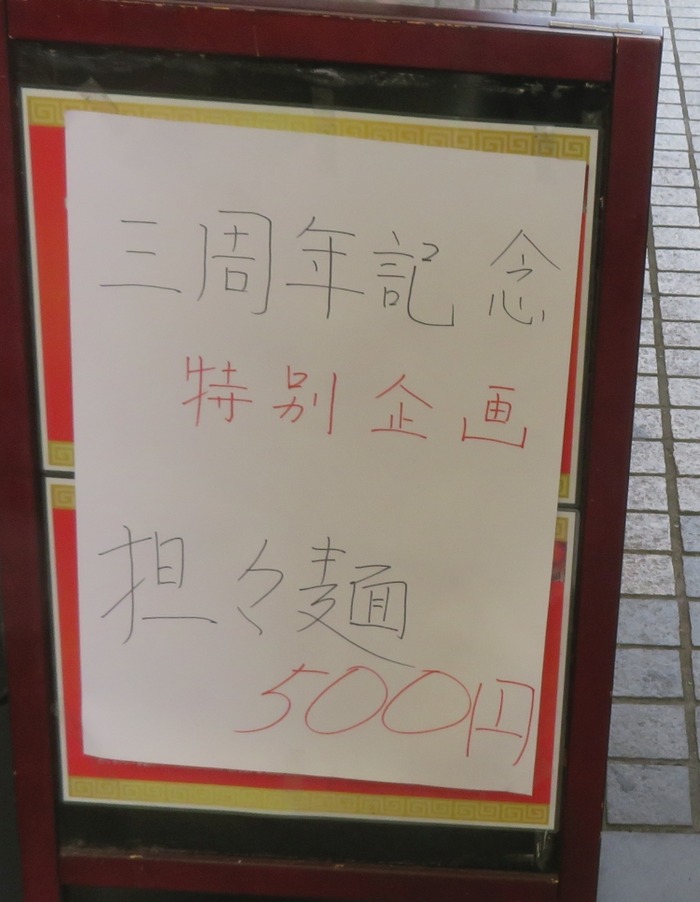 三周年記念
特別企画
担々麺
500円